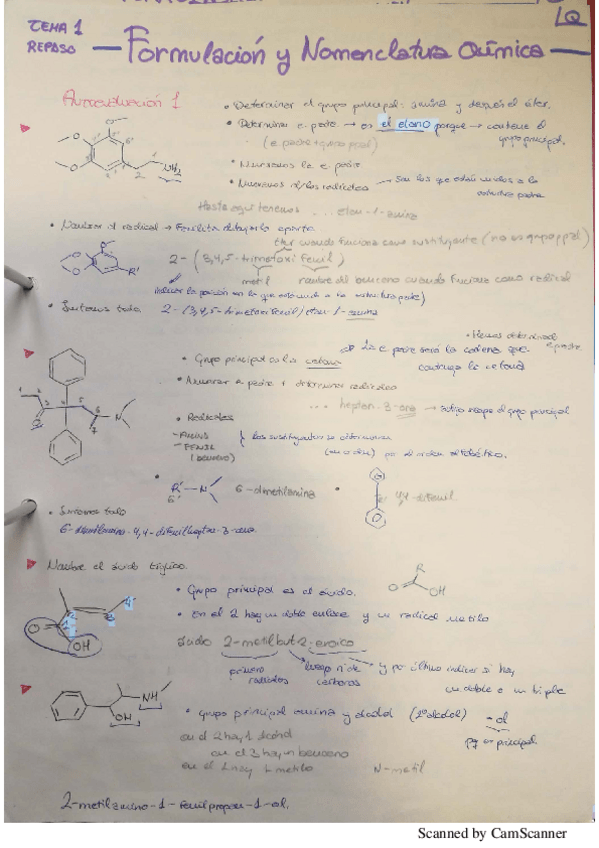 TEMA 1
REPASO
Formulación y Nomenclatura Química
Autoevaluación 1
• Determinar el grupo principal: amina y después el éter.
• Determinar e. padre → es el etano porque → contiene el grupo principal.
(e. padre + grupo ppal)
• Numeramos la e. padre
• Numeramos radicales → son los que están unidos a la estructura padre
Hasta aquí tenemos ... etan-1-amina
• Nombrar el radical → Facilita dibujarlo aparte.
éter cuando funciona como sustituyente (no es grupo ppal)
2-(3,4,5-trimetoxifenil)
metil nombre del benceno cuando funciona como radical
indicar la posición en la que está unido a la estructura padre)
• Juntamos todo 2-(3,4,5-trimetoxifenil)etan-1-amina
• Grupo principal es la cetona
La e. padre será la cadena que contenga la cetona
• Numerar e. padre y determinar radicales
... heptan-3-ona → sufijo grupo principal
• Radicales
- AMINO
- FENIL
(benceno)
los sustituyentes se orden alfabético.
R' N
6'
6-dimetilamina
4,4-difenil
• Juntamos todo
6-dimetilamino-4,4-difenilheptan-3-ona
Nombre el ácido tíglico.
• Grupo principal es el ácido.
R
O
OH
• en el 2 hay un doble enlace y un radical metilo
O
OH
ácido 2-metilbut-2-enoico
primero radicales
luego nº de carbonos
y por último indicar si hay un doble o un triple
NH
OH
• Grupo principal amina y alcohol (1º alcohol) -ol
en el 2 hay 1 alcohol
pq es principal.
en el 3 hay un benceno
en el 2 hay 1 metilo N-metil
2-metilamino-1-fenilpropan-1-ol.
Scanned by CamScanner